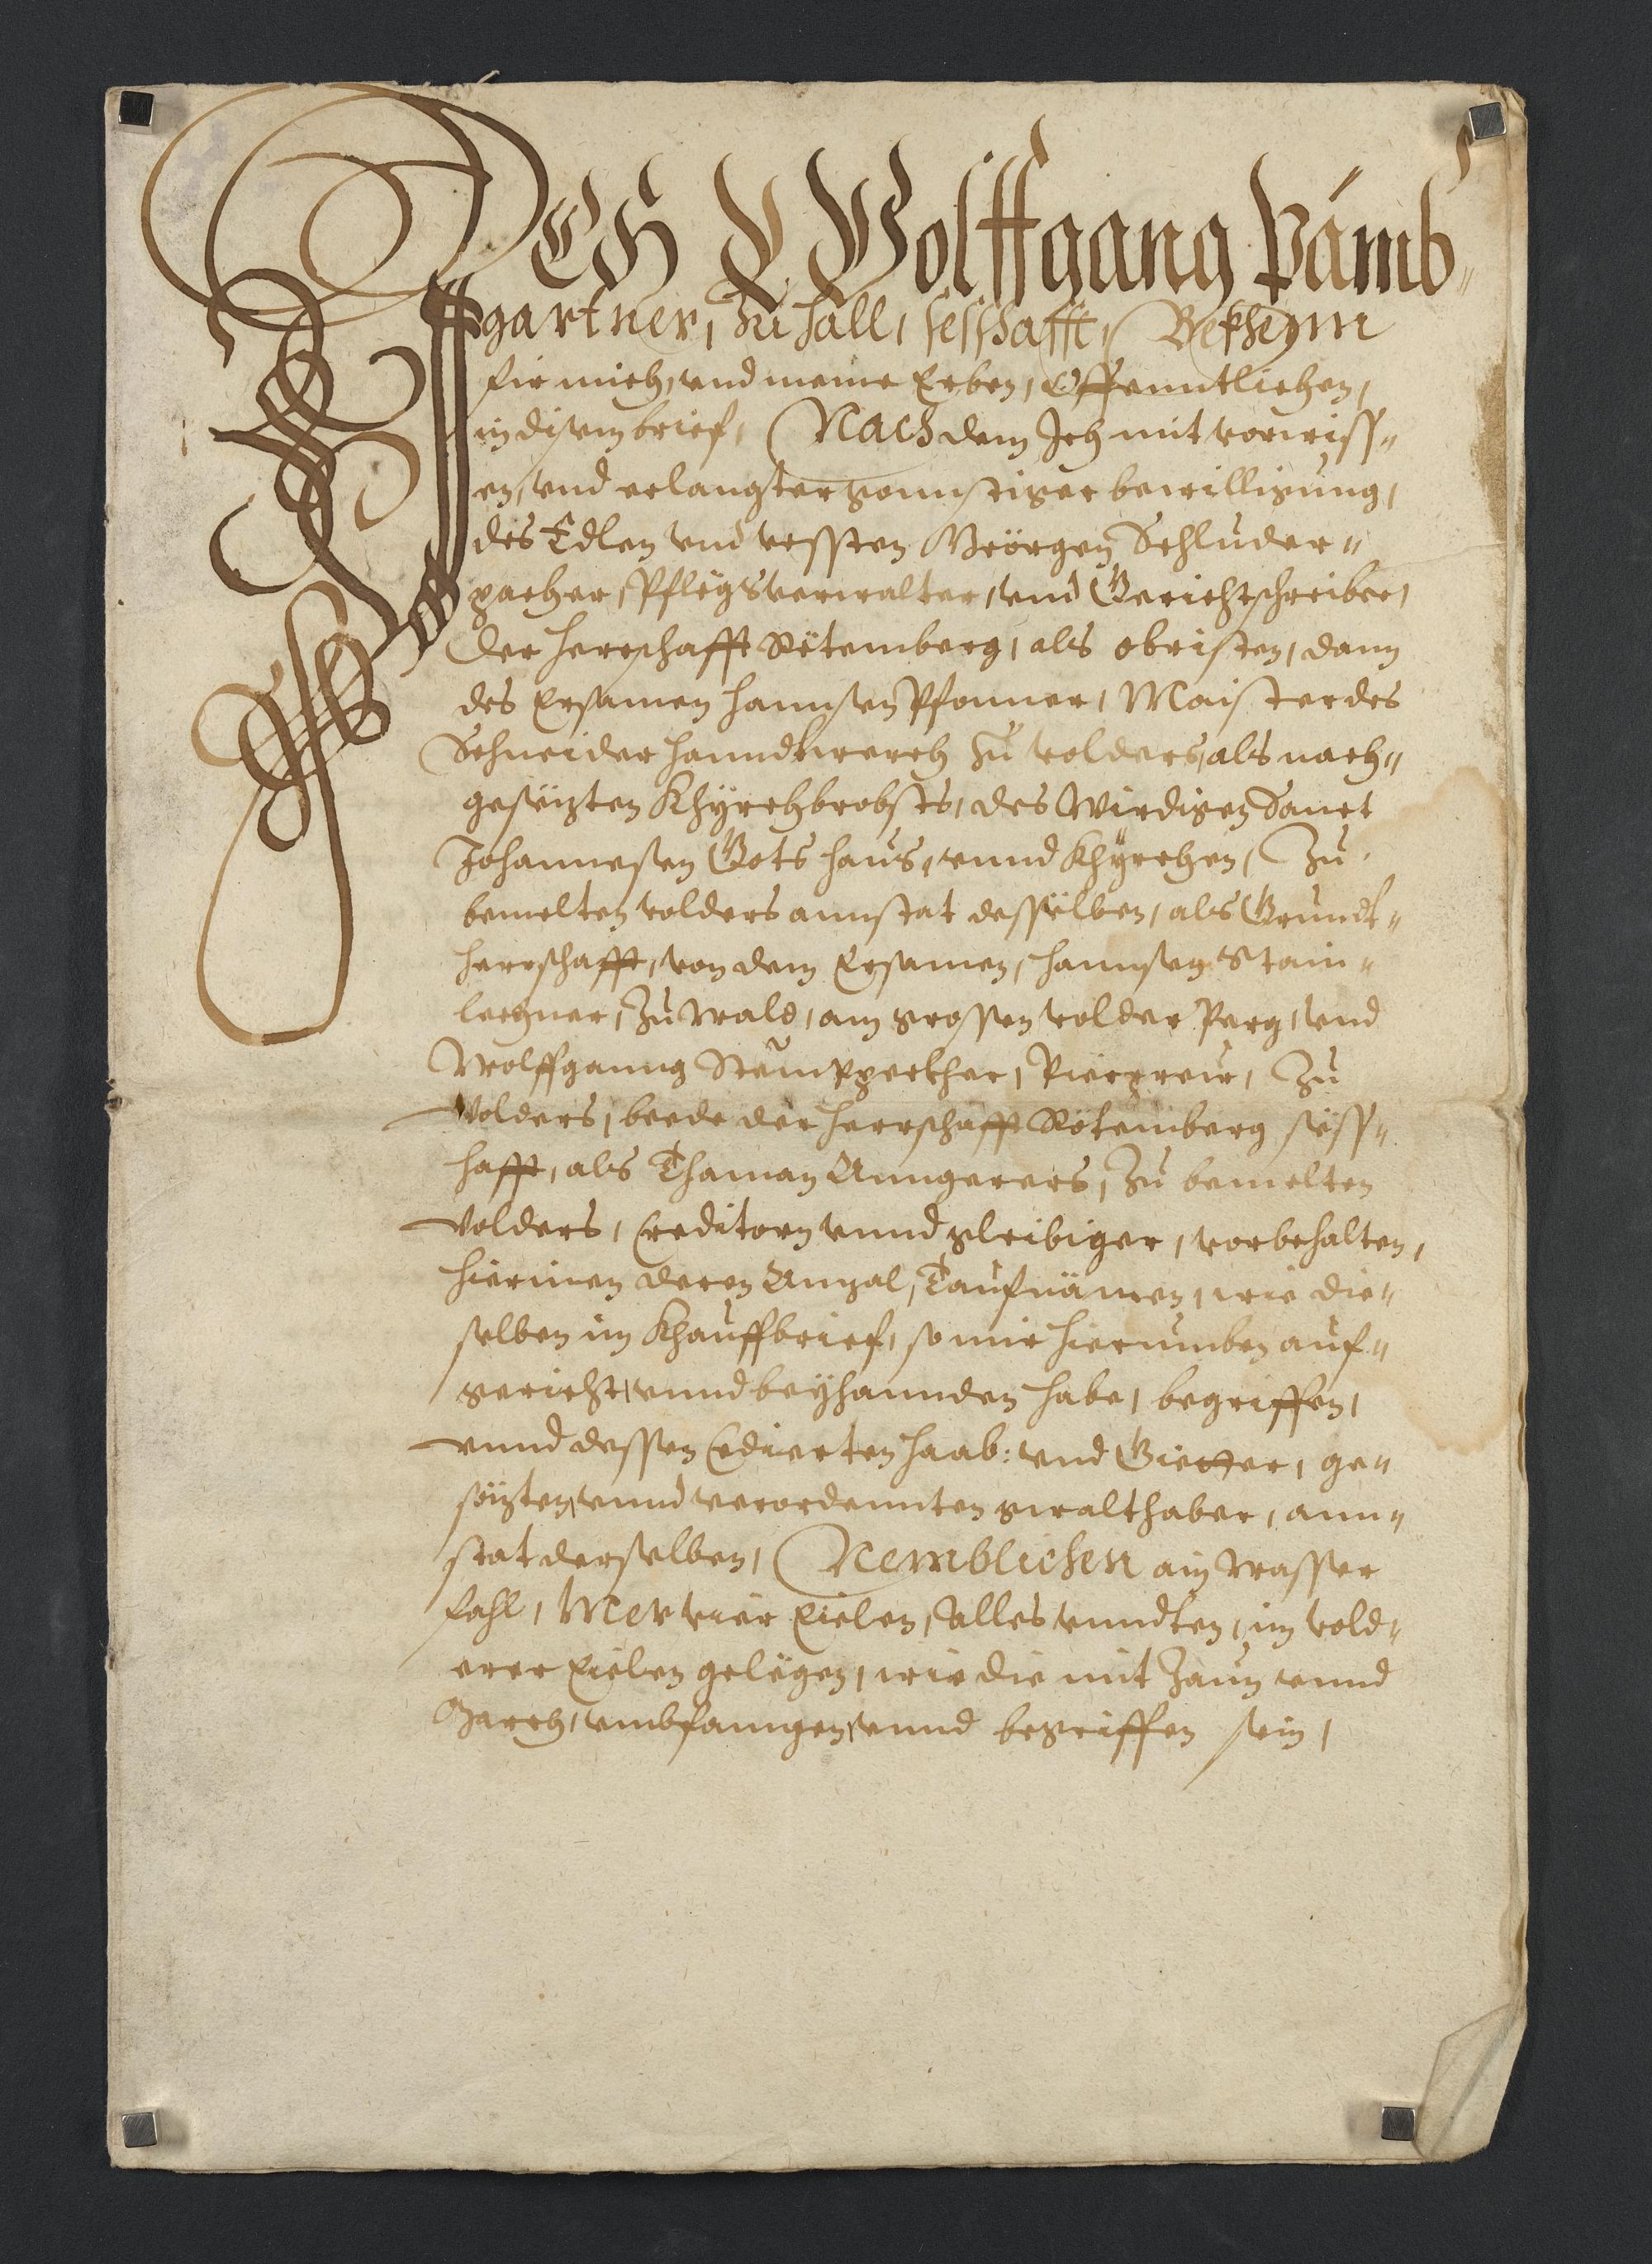 ICH Wolffganng Pämb„
gartner, zu Hall, sesshafft, Bekhenn
fir mich, und meine Erben, Offenntlichen,
in disem brief, Nach dem Ich mit vorwiss„
en, und erlangter gonnstiger bewilligung,
des Edlen und vessten Geörgen Schluder„
pacher, Pflegsverwalter, und Gerichtschreiber,
der Herrschafft Rötemberg, als obristen, dann
des Ersamen Hannsen Pfonner, Maister des
Schneider Hanndtwerch zu Volders, als nach„
gesetzten Khyrchbrobsts, des Wirdigen Sanct
Johannesen Gots Haus, unnd Khyrchen, Zu
bemelten Volders anstat desselben, als Grundt„
herrschafft, von dem Ersamen, Hannsen Stain„
lechner, Zu Wald, am grossen Volder Perg, und
Wolffganng Stumpperkher, Pierpreu, Zu
Volders, beede der Herrschafft Rötemberg sess„
hafft, als Thaman Anngerers, Zu bemelten
Volders, Creditorn unnd gleibiger, vorbehalten,
hierinen deren Anzal, Taufnämen, wie die„
selben im Khauffbrief, so mir hierumben auf„
gericht, unnd beyhannden habe, begriffen,
unnd dessen Cedierten Haab: und Giether, ge„
sözten, unnd verordennten gwalthaber, ann„
stat derselben, Nemblichen ain Wasser
fahl, Mer vier Pielen, Alles unndten, im Vold„
erer Pielen gelegen, wie die mit Zaun unnd
March, umbfanngen, unnd begriffen sein,